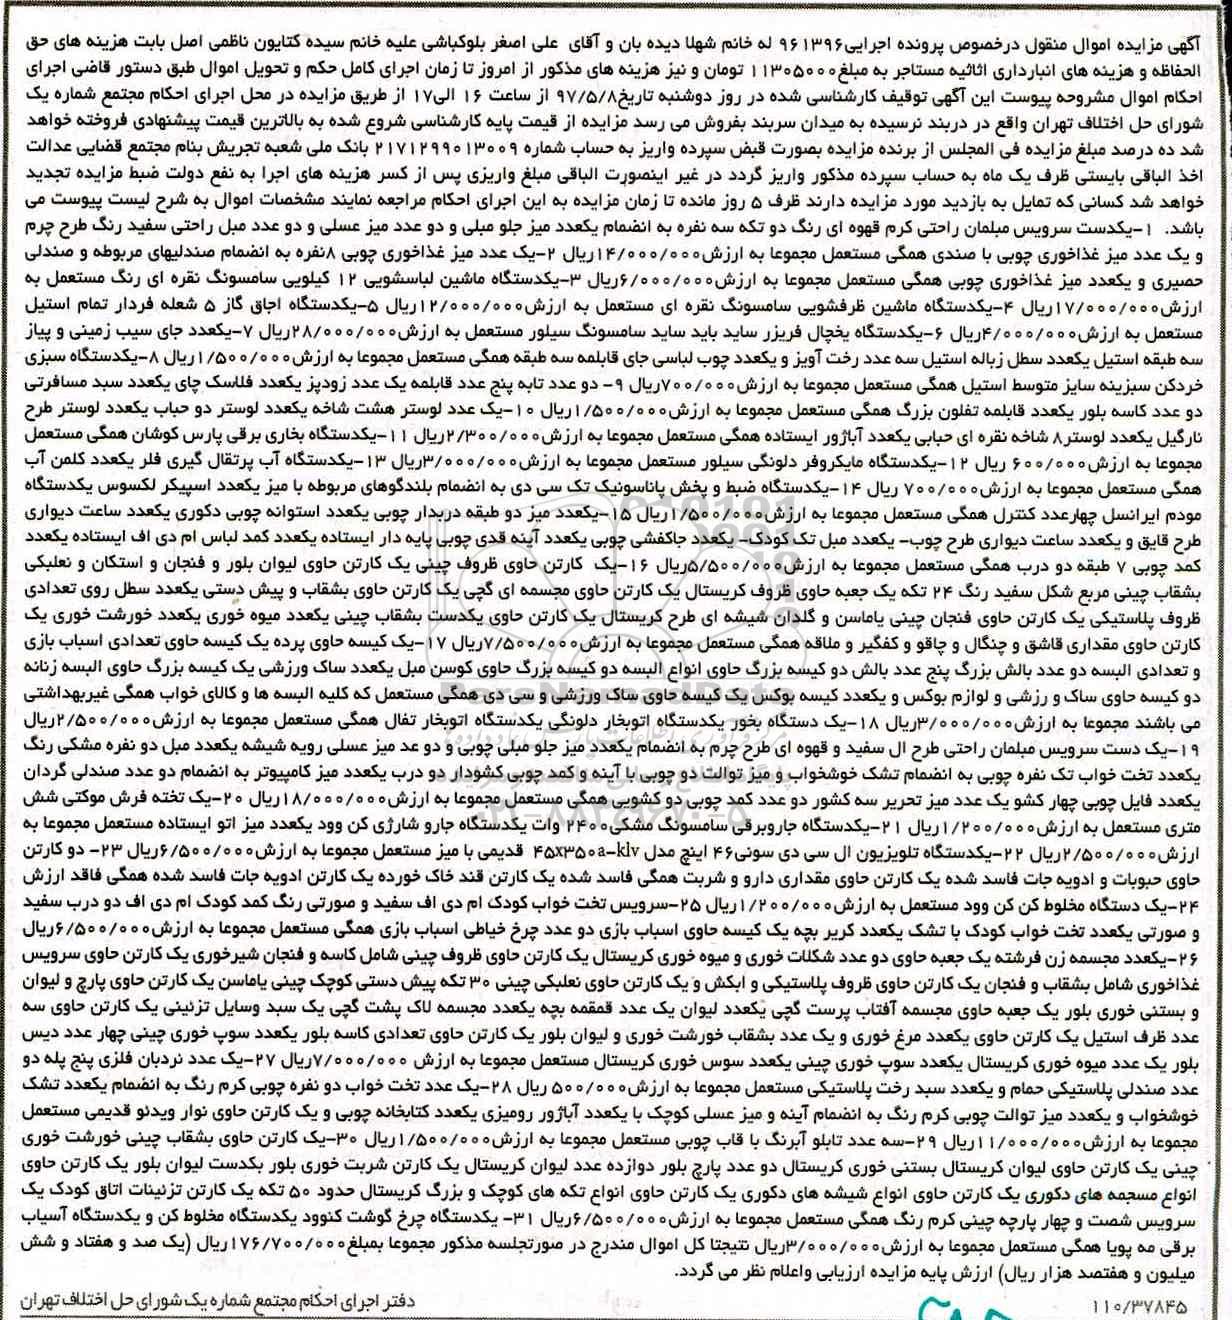 آگهی مزایده اموال منقول درخصوص پرونده اجرایی۹۶۱۳۹۶ له خانم شهلا دیده بان و آقای علی اصغر بلوکباشی علیه خانم سیده کتایون ناظمی اصل بابت هزینه های حق
الحفاظه و هزینه های انبارداری اثاثیه مستاجر به مبلغ۱۱۳۰۵۰۰۰ تومان و نیز هزینه های مذکور از امروز تا زمان اجرای کامل حکم و تحویل اموال طبق دستور قاضی اجرای
احکام اموال مشروحه پیوست این آگهی توقیف کارشناسی شده در روز دوشنبه تاریخ۹۷/۵/۸ از ساعت ۱۶ الی۱۷ از طریق مزایده در محل اجرای احکام مجتمع شماره یک
شورای حل اختلاف تهران واقع در دربند نرسیده به میدان سربند بفروش می رسد مزایده از قیمت پایه کارشناسی شروع شده به بالاترین قیمت پیشنهادی فروخته خواهد
شد ده درصد مبلغ مزایده فی المجلس از برنده مزایده بصورت قبض سپرده واریز به حساب شماره ۲۱۷۱۲۹۹۰۱۳۰۰۹ بانک ملی شعبه تجریش بنام مجتمع قضایی عدالت
اخذ الباقی بایستی ظرف یک ماه به حساب سپرده مذکور واریز گردد در غیر اینصورت الباقی مبلغ واریزی پس از کسر هزینه های اجرا به نفع دولت ضبط مزایده تجدید
خواهد شد کسانی که تمایل به بازدید مورد مزایده دارند ظرف ۵ روز مانده تا زمان مزایده به این اجرای احکام مراجعه نمایند مشخصات اموال به شرح لیست پیوست می
باشد. ۱-یکدست سرویس مبلمان راحتی کرم قهوه ای رنگ دو تکه سه نفره به انضمام یکعدد میز جلو مبلی و دو عدد میز عسلی و دو عدد مبل راحتی سفید رنگ طرح چرم
و یک عدد میز غذاخوری چوبی با صندی همگی مستعمل مجموعا به ارزش۱۴/۰۰۰/۰۰۰ریال ۲-یک عدد میز غذاخوری چوبی ۸نفره به انضمام صندلیهای مربوطه و صندلی
حصیری و یکعدد میز غذاخوری چوبی همگی مستعمل مجموعا به ارزش۶/۰۰۰/۰۰۰ریال ۳-یکدستگاه ماشین لباسشویی ۱۲ کیلویی سامسونگ نقره ای رنگ مستعمل به
ارزش۱۷/۰۰۰/۰۰۰ریال ۴-یکدستگاه ماشین ظرفشویی سامسونگ نقره ای مستعمل به ارزش۱۲/۰۰۰/۰۰۰ریال ۵-یکدستگاه اجاق گاز ۵ شعله فردار تمام استیل
مستعمل به ارزش۴/۰۰۰/۰۰۰ریال ۶-یکدستگاه یخچال فریزر ساید باید ساید سامسونگ سیلور مستعمل به ارزش۲۸/۰۰۰/۰۰۰ریال ۷-یکعدد جای سیب زمینی و پیاز
سه طبقه استیل یکعدد سطل زباله استیل سه عدد رخت آویز و یکعدد چوب لباسی جای قابلمه سه طبقه همگی مستعمل مجموعا به ارزش۱/۵۰۰/۰۰۰ریال ۸-یکدستگاه سبزی
خردکن سبزینه سایز متوسط استیل همگی مستعمل مجموعا به ارزش۷۰۰/۰۰۰ریال ۹- دو عدد تابه پنج عدد قابلمه یک عدد زودپز یکعدد فلاسک چای یکعدد سبد مسافرتی
دو عدد کاسه بلور یکعدد قابلمه تفلون بزرگ همگی مستعمل مجموعا به ارزش۱/۵۰۰/۰۰۰ریال ۱۰-یک عدد لوستر هشت شاخه یکعدد لوستر دو حباب یکعدد لوستر طرح
نارگیل یکعدد لوستر۸ شاخه نقره ای حبابی یکعدد آباژور ایستاده همگی مستعمل مجموعا به ارزش۲/۳۰۰/۰۰۰ریال ۱۱-یکدستگاه بخاری برقی پارس کوشان همگی مستعمل
مجموعا به ارزش۶۰۰/۰۰۰ ریال ۱۲-یکدستگاه مایکروفر دلونگی سیلور مستعمل مجموعا به ارزش۳/۰۰۰/۰۰۰ریال ۱۳-یکدستگاه آب پرتقال گیری فلر یکعدد کلمن آب
همگی مستعمل مجموعا به ارزش۷۰۰/۰۰۰ ریال ۱۴-یکدستگاه ضبط و پخش پاناسونیک تک سی دی به انضمام بلندگوهای مربوطه با میز یکعدد اسپیکر لکسوس یکدستگاه
مودم ایرانسل چهارعدد کنترل همگی مستعمل مجموعا به ارزش۱/۵۰۰/۰۰۰ریال ۱۵-یکعدد میز دو طبقه دربدار چوبی یکعدد استوانه چوبی دکوری یکعدد ساعت دیواری
طرح قایق و یکعدد ساعت دیواری طرح چوب- یکعدد مبل تک کودک- یکعدد جاکفشی چوبی یکعدد آینه قدی چوبی پایه دار ایستاده یکعدد کمد لباس ام دی اف ایستاده یکعدد
کمد چوبی ۷ طبقه دو درب همگی مستعمل مجموعا به ارزش۵/۵۰۰/۰۰۰ریال ۱۶-یک کارتن حاوی ظروف چینی یک کارتن حاوی لیوان بلور و فنجان و استکان و نعلبکی
بشقاب چینی مربع شکل سفید رنگ ۲۴ تکه یک جعبه حاوی ظروف کریستال یک کارتن حاوی مجسمه ای گچی یک کارتن حاوی بشقاب و پیش دستی یکعدد سطل روی تعدادی
ظروف پلاستیکی یک کارتن حاوی فنجان چینی یاماسن و گلدان شیشه ای طرح کریستال یک کارتن حاوی یکدست بشقاب چینی یکعدد میوه خوری یکعدد خورشت خوری یک
کارتن حاوی مقداری قاشق و چنگال و چاقو و کفگیر و ملاقه همگی مستعمل مجموعا به ارزش۷/۵۰۰/۰۰۰ریال ۱۷-یک کیسه حاوی پرده یک کیسه حاوی تعدادی اسباب بازی
و تعدادی البسه دو عدد بالش بزرگ پنج عدد بالش دو کیسه بزرگ حاوی انواع البسه دو کیسه بزرگ حاوی کوسن مبل یکعدد ساک ورزشی یک کیسه بزرگ حاوی البسه زنانه
دو کیسه حاوی ساک و رزشی و لوازم بوکس و یکعدد کیسه بوکس یک کیسه حاوی ساک ورزشی و سی دی همگی مستعمل که کلیه البسه ها و کالای خواب همگی غیربهداشتی
می باشند مجموعا به ارزش۳/۰۰۰/۰۰۰ریال ۱۸-یک دستگاه بخور یکدستگاه اتوبخار دلونگی یکدستگاه اتوبخار تفال همگی مستعمل مجموعا به ارزش۲/۵۰۰/۰۰۰ریال
۱۹-یک دست سرویس مبلمان راحتی طرح ال سفید و قهوه ای طرح چرم به انضمام یکعدد میز جلو مبلی چوبی و دو عد میز عسلی رویه شیشه یکعدد مبل دو نفره مشکی رنگ
یکعدد تخت خواب تک نفره چوبی به انضمام تشک خوشخواب و میز توالت دو چوبی با آینه و کمد چوبی کشودار دو درب یکعدد میز کامپیوتر به انضمام دو عدد صندلی گردان
یکعدد فایل چوبی چهار کشو یک عدد میز تحریر سه کشور دو عدد کمد چوبی دو کشویی همگی مستعمل مجموعا به ارزش۱۸/۰۰۰/۰۰۰ریال ۲۰-یک تخته فرش موکتی شش
متری مستعمل به ارزش۱/۲۰۰/۰۰۰ریال ۲۱-یکدستگاه جاروبرقی سامسونگ مشکی۲۴۰۰ وات یکدستگاه جارو شارژی کن وود یکعدد میز اتو ایستاده مستعمل مجموعا به
ارزش۲/۵۰۰/۰۰۰ریال ۲۲-یکدستگاه تلویزیون ال سی دی سونی۴۶ اینچ مدل ۴۵x۳۵۰a-klv قدیمی با میز مستعمل مجموعا به ارزش۶/۵۰۰/۰۰۰ریال ۲۳- دو کارتن
حاوی حبوبات و ادویه جات فاسد شده یک کارتن حاوی مقداری دارو و شربت همگی فاسد شده یک کارتن قند خاک خورده یک کارتن ادویه جات فاسد شده همگی فاقد ارزش
۲۴-یک دستگاه مخلوط کن کن وود مستعمل به ارزش۱/۲۰۰/۰۰۰ریال ۲۵-سرویس تخت خواب کودک ام دی اف سفید و صورتی رنگ کمد کودک ام دی اف دو درب سفید
و صورتی یکعدد تخت خواب کودک با تشک یکعدد کریر بچه یک کیسه حاوی اسباب بازی دو عدد چرخ خیاطی اسباب بازی همگی مستعمل مجموعا به ارزش۶/۵۰۰/۰۰۰ریال
۲۶-یکعدد مجسمه زن فرشته یک جعبه حاوی دو عدد شکلات خوری و میوه خوری کریستال یک کارتن حاوی ظروف چینی شامل کاسه و فنجان شیرخوری یک کارتن حاوی سرویس
غذاخوری شامل بشقاب و فنجان یک کارتن حاوی ظروف پلاستیکی و ابکش و یک کارتن حاوی نعلبکی چینی ۳۰ تکه پیش دستی کوچک چینی یاماسن یک کارتن حاوی پارچ و لیوان
و بستنی خوری بلور یک جعبه حاوی مجسمه آفتاب پرست گچی یکعدد لیوان یک عدد قمقمه بچه یکعدد مجسمه لاک پشت گچی یک سبد وسایل تزئینی یک کارتن حاوی سه
عدد ظرف استیل یک کارتن حاوی یکعدد مرغ خوری و یک عدد بشقاب خورشت خوری و لیوان بلور یک کارتن حاوی تعدادی کاسه بلور یکعدد سوپ خوری چینی چهار عدد دیس
بلور یک عدد میوه خوری کریستال یکعدد سوپ خوری چینی یکعدد سوس خوری کریستال مستعمل مجموعا به ارزش ۷/۰۰۰/۰۰۰ریال ۲۷-یک عدد نردبان فلزی پنج پله دو
عدد صندلی پلاستیکی حمام و یکعدد سبد رخت پلاستیکی مستعمل مجموعا به ارزش۵۰۰/۰۰۰ ریال ۲۸-یک عدد تخت خواب دو نفره چوبی کرم رنگ به انضمام یکعدد تشک
خوشخواب و یکعدد میز توالت چوبی کرم رنگ به انضمام آینه و میز عسلی کوچک با یکعدد آباژور رومیزی یکعدد کتابخانه چوبی و یک کارتن حاوی نوار ویدئو قدیمی مستعمل
مجموعا به ارزش۱۱/۰۰۰/۰۰۰ریال ۲۹-سه عدد تابلو آبرنگ با قاب چوبی مستعمل مجموعا به ارزش۱/۵۰۰/۰۰۰ریال ۳۰-یک کارتن حاوی بشقاب چینی خورشت خوری
چینی یک کارتن حاوی لیوان کریستال بستنی خوری کریستال دو عدد پارچ بلور دوازده عدد لیوان کریستال یک کارتن شربت خوری بلور بکدست لیوان بلور یک کارتن حاوی
انواع مسجمه های دکوری یک کارتن حاوی انواع شیشه های دکوری یک کارتن حاوی انواع تکه های کوچک و بزرگ کریستال حدود ۵۰ تکه یک کارتن تزئینات اتاق کودک یک
سرویس شصت و چهار پارچه چینی کرم رنگ همگی مستعمل مجموعا به ارزش۶/۵۰۰/۰۰۰ریال ۳۱- یکدستگاه چرخ گوشت کنوود یکدستگاه مخلوط کن و یکدستگاه آسیاب
برقی مه پویا همگی مستعمل مجموعا به ارزش۳/۰۰۰/۰۰۰ریال نتیجتا کل اموال مندرج در صورتجلسه مذکور مجموعا بمبلغ۱۷۶/۷۰۰/۰۰۰ریال (یک صد و هفتاد و شش
میلیون و هفتصد هزار ریال) ارزش پایه مزایده ارزیابی واعلام نظر می گردد.
۱۱۰/۳۷۸۴۵ دفتر اجرای احکام مجتمع شماره یک شورای حل اختلاف تهران